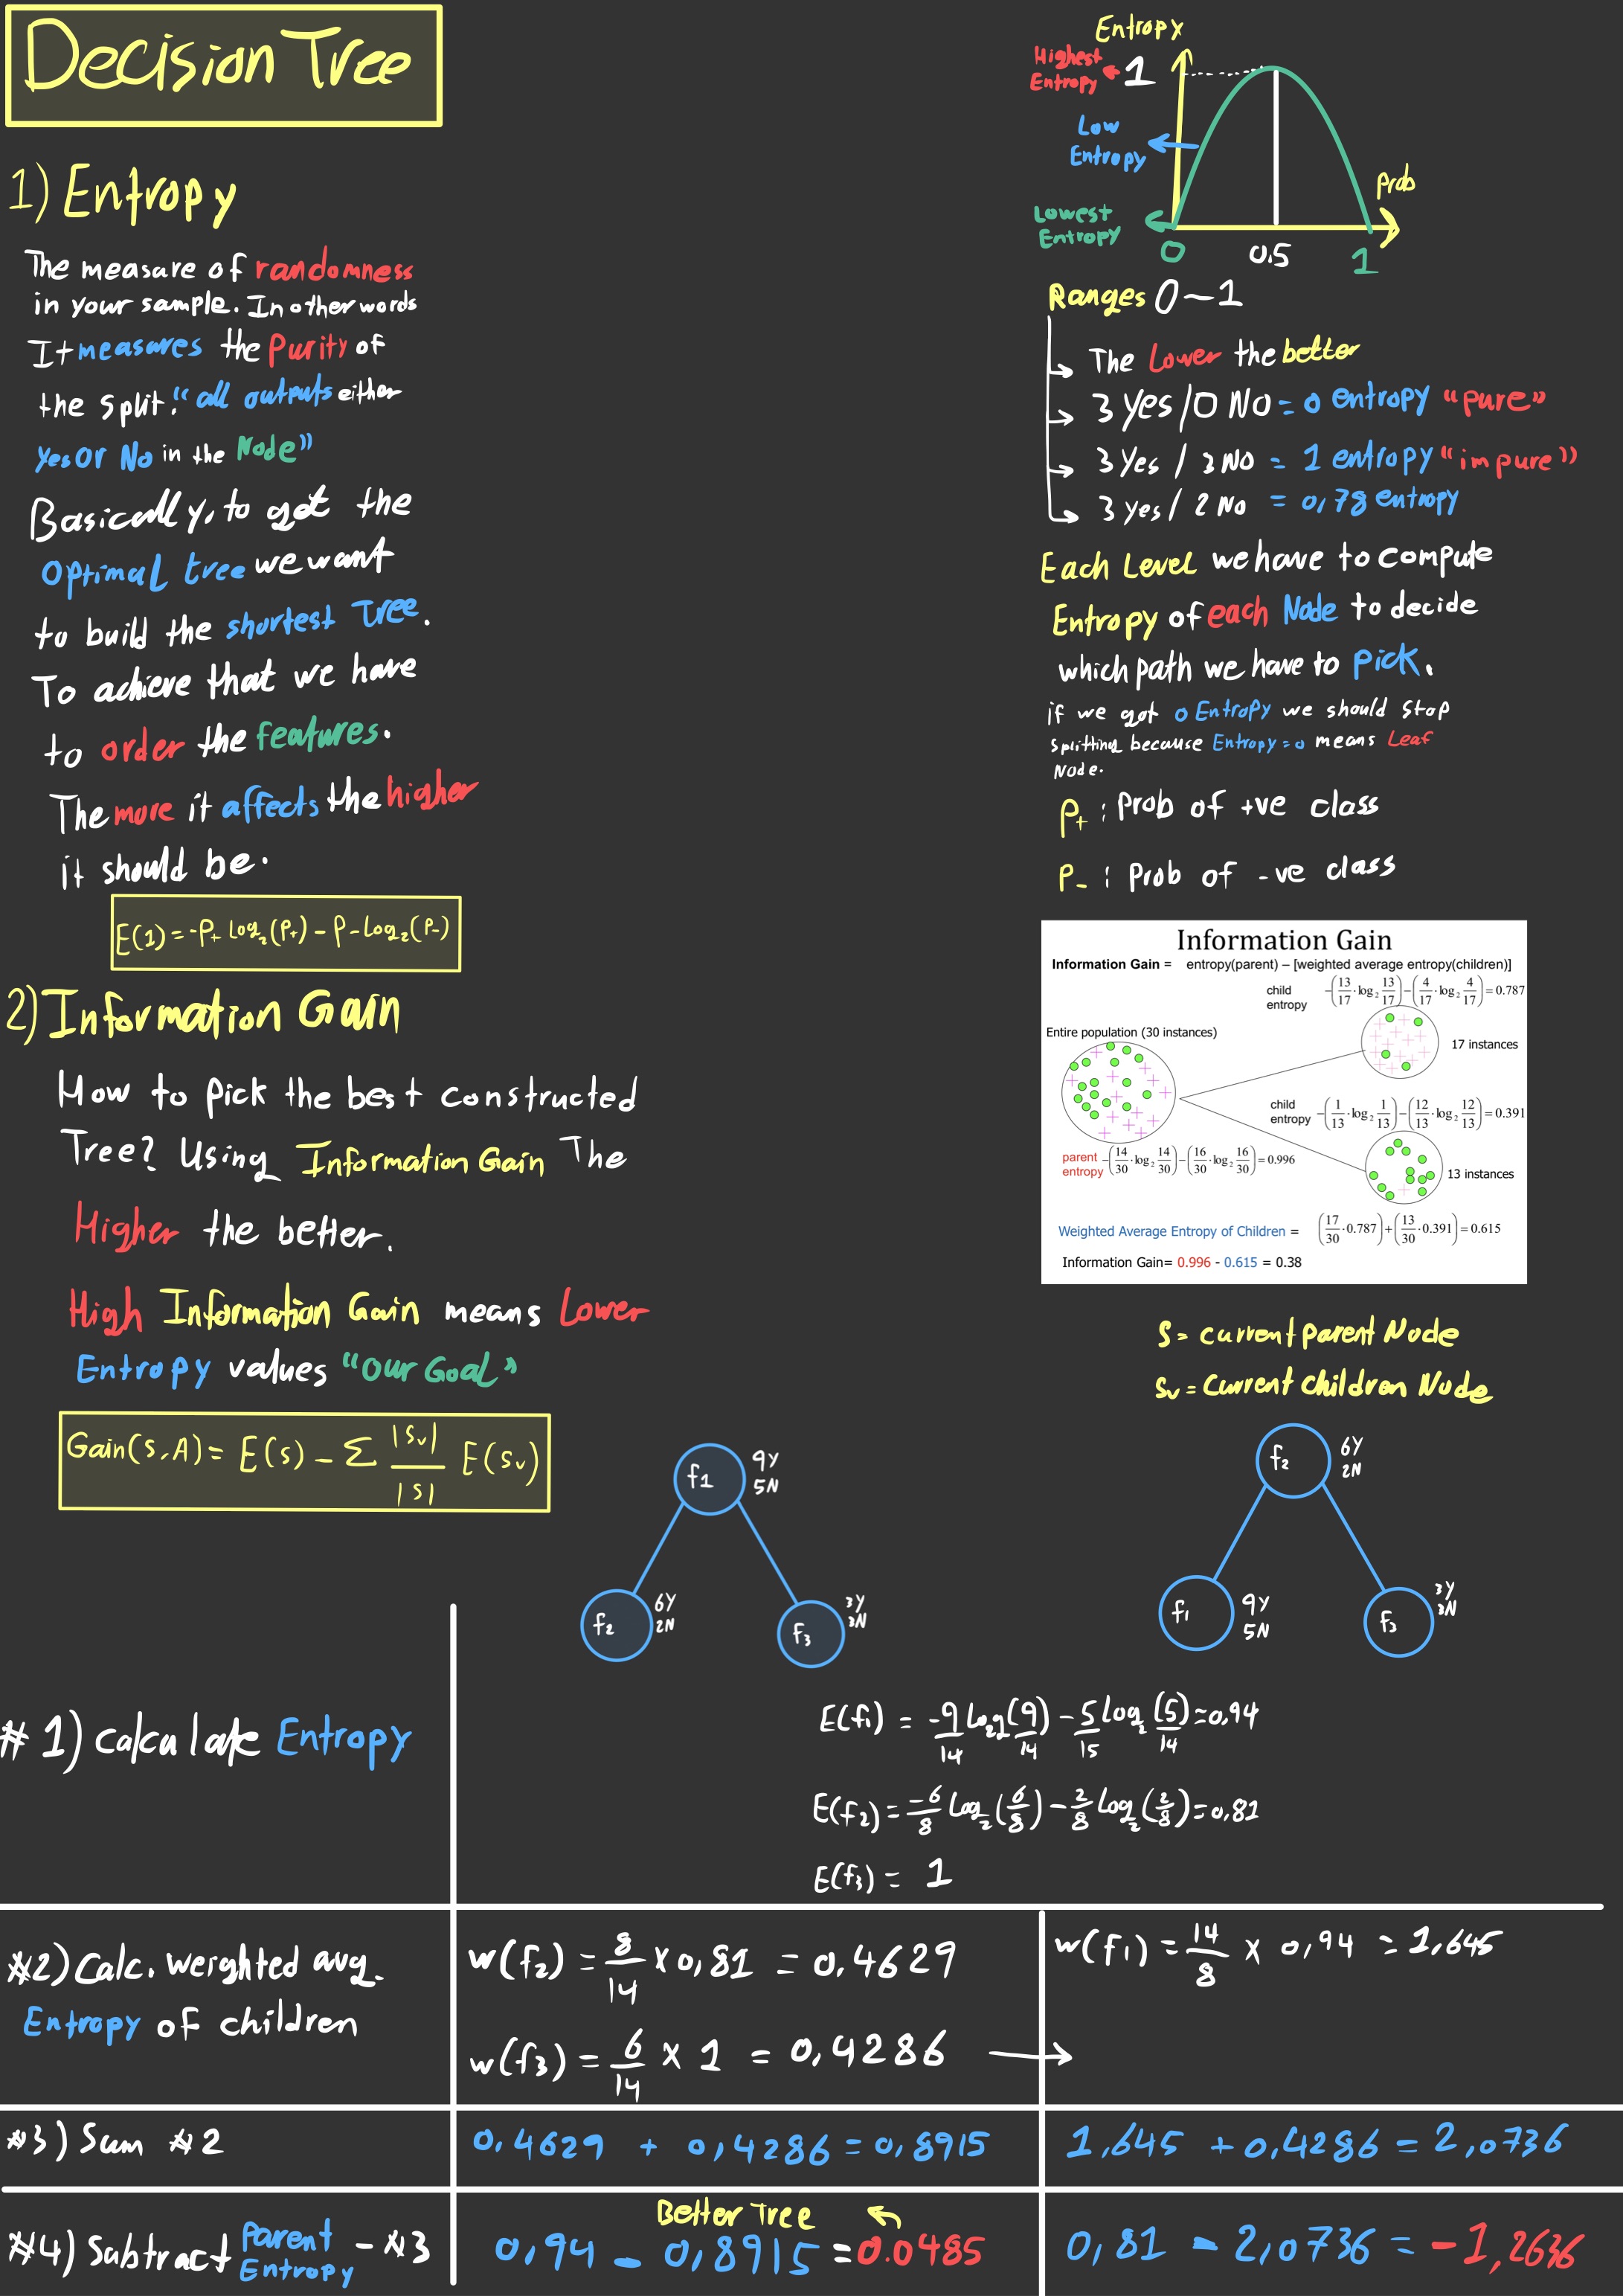 Decision Tree
1) Entropy
The measure of randomness
in your sample. In other words
It measures the Purity of
the split. "all outputs either
yes Or No in the Node"
Basically, to get the
Optimal tree we want
to build the shortest Tree.
To achieve that we have
to order the features.
The more it affects the higher
it should be.
E(1) = -P+ Log2(P+) - P- Log2(P-)
Entropy
Highest
Entropy
1
Low
Entropy
Lowest
Entropy
Prob
0
0.5
1
Ranges 0-1
The Lower the better
3 Yes / 0 No = 0 entropy "pure"
3 Yes / 3 No = 1 entropy "impure"
3 yes / 2 No = 0,78 entropy
Each Level we have to compute
Entropy of each Node to decide
which path we have to pick.
if we got 0 Entropy we should stop
splitting because Entropy=0 means Leaf
Node.
P+ : Prob of +ve class
P- : Prob of -ve class
2) Information Gain
How to pick the best constructed
Tree? Using Information Gain The
Higher the better.
High Information Gain means Lower
Entropy values "Our Goal"
Gain(S,A) = E(s) - Σ |Sv| / |S| E(Sv)
Information Gain
Information Gain = entropy(parent) – [weighted average entropy(children)]
child entropy -(13/17 · log2 13/17) - (4/17 · log2 4/17) = 0.787
Entire population (30 instances)
17 instances
child entropy -(1/13 · log2 1/13) - (12/13 · log2 12/13) = 0.391
parent entropy -(14/30 · log2 14/30) - (16/30 · log2 16/30) = 0.996
13 instances
Weighted Average Entropy of Children = (17/30 · 0.787) + (13/30 · 0.391) = 0.615
Information Gain= 0.996 - 0.615 = 0.38
S = current parent Node
Sv = Current Children Node
f1
9Y
5N
f2
6Y
2N
f3
3Y
3N
f2
6Y
2N
f1
9Y
5N
f3
3Y
3N
# 1) Calculate Entropy
E(f1) = -9/14 Log2(9/14) - 5/15 log2(5/14) = 0,94
E(f2) = -6/8 Log2(6/8) - 2/8 Log2(2/8) = 0,81
E(f3) = 1
#2) Calc. weighted avg.
Entropy of children
w(f2) = 8/14 × 0,81 = 0.4629
w(f3) = 6/14 × 1 = 0,4286 →
w(f1) = 14/8 × 0,94 = 1,645
#3) Sum #2
0.4629 + 0,4286 = 0,8915
1,645 + 0,4286 = 2,0736
#4) Subtract Parent Entropy - #3
Better Tree
0,94 - 0,8915 = 0.0485
0,81 - 2,0736 = -1,2636